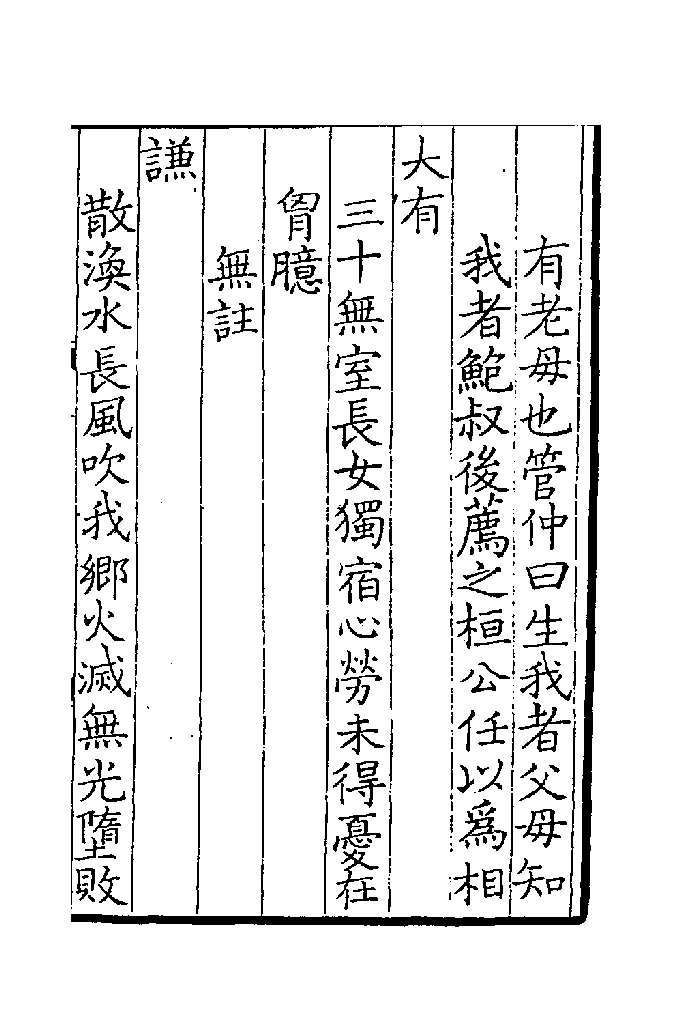 有老毋也管仲曰生我者父毋知
我者鮑叔後薦之桓公任以爲相
大有
三十無室長女獨宿心勞未得憂在
胷臆
無註
謙
散渙水長風吹我鄉火滅無光墮敗